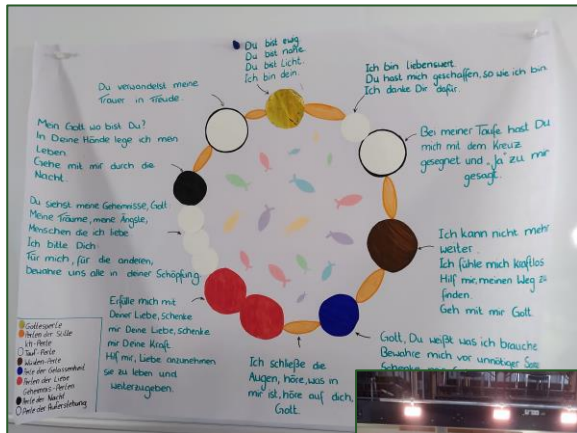 Du bist ewig
Du bist nahe.
Du bist Licht.
Ich bin dein.
Ich bin liebenswert.
Du hast mich geschaffen, so wie ich bin
Ich danke Dir dafür.
Bei meiner Taufe hast Du
mich mit dem Kreuz
gesegnet und „Ja" zu mir
gesagt.
Ich kann nicht mehr
weiter.
Ich fühle mich kraftlos
Hilf mir, meinen Weg zu
finden.
Geh mit mir Gott.
Gott, Du weißt was ich brauche
Bewahre mich vor unnötiger
Ich schließe die
Augen, höre, was in
mir ist, höre auf dich,
Gott.
Erfülle mich mit
Deiner Liebe, schenke
mir Deine Liebe, schenke
mir Deine Kraft.
Hilf mir, Liebe anzunehmen
sie zu leben und
weiterzugeben.
Du siehst meine Geheimnisse, Gott:
Meine Träume, meine Ängste,
Menschen die ich liebe
Ich bitte Dich:
Für mich, für die anderen,
bewahre uns alle in deiner Schöpfung.
Mein Gott wo bist Du?
In Deine Hände lege ich mein
Leben.
Gehe mit mir durch die
Nacht.
Du verwandelst meine
Trauer in Freude.
Gottesperle
Perlen der Stille
Ich-Perle
Tauf-Perle
Wüsten-Perle
Perle der Gelassenheit
Perlen der Liebe
Geheimnis-Perlen
Perle der Nacht
Perle der Auferstehung